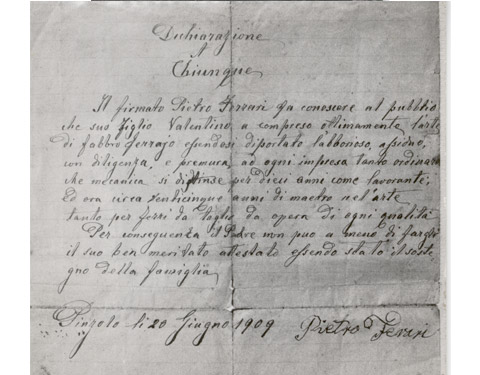 Dichiarazione
A
Chiunque
Il firmato Pietro Ferrari fa conoscere al pubblio
che suo figlio Valentino, a compreso ottimamente l'arte
di fabbro ferrajo essendosi diportato labborioso, assiduo,
con diligenza, e premura, ad ogni impresa tanto ordinaria
che mecanica si distinse per dieci anni come lavorante,
Ed ora circa venticinque anni di maestro nel'arte
tanto per forzi da taglio da opera di ogni qualità
Per conseguenza il Padre non puo a meno di fargli
il suo ben meritato attestato essendo stato il soste
gno della famiglia
Pinzolo li 20 Giugno 1909
Pietro Ferari